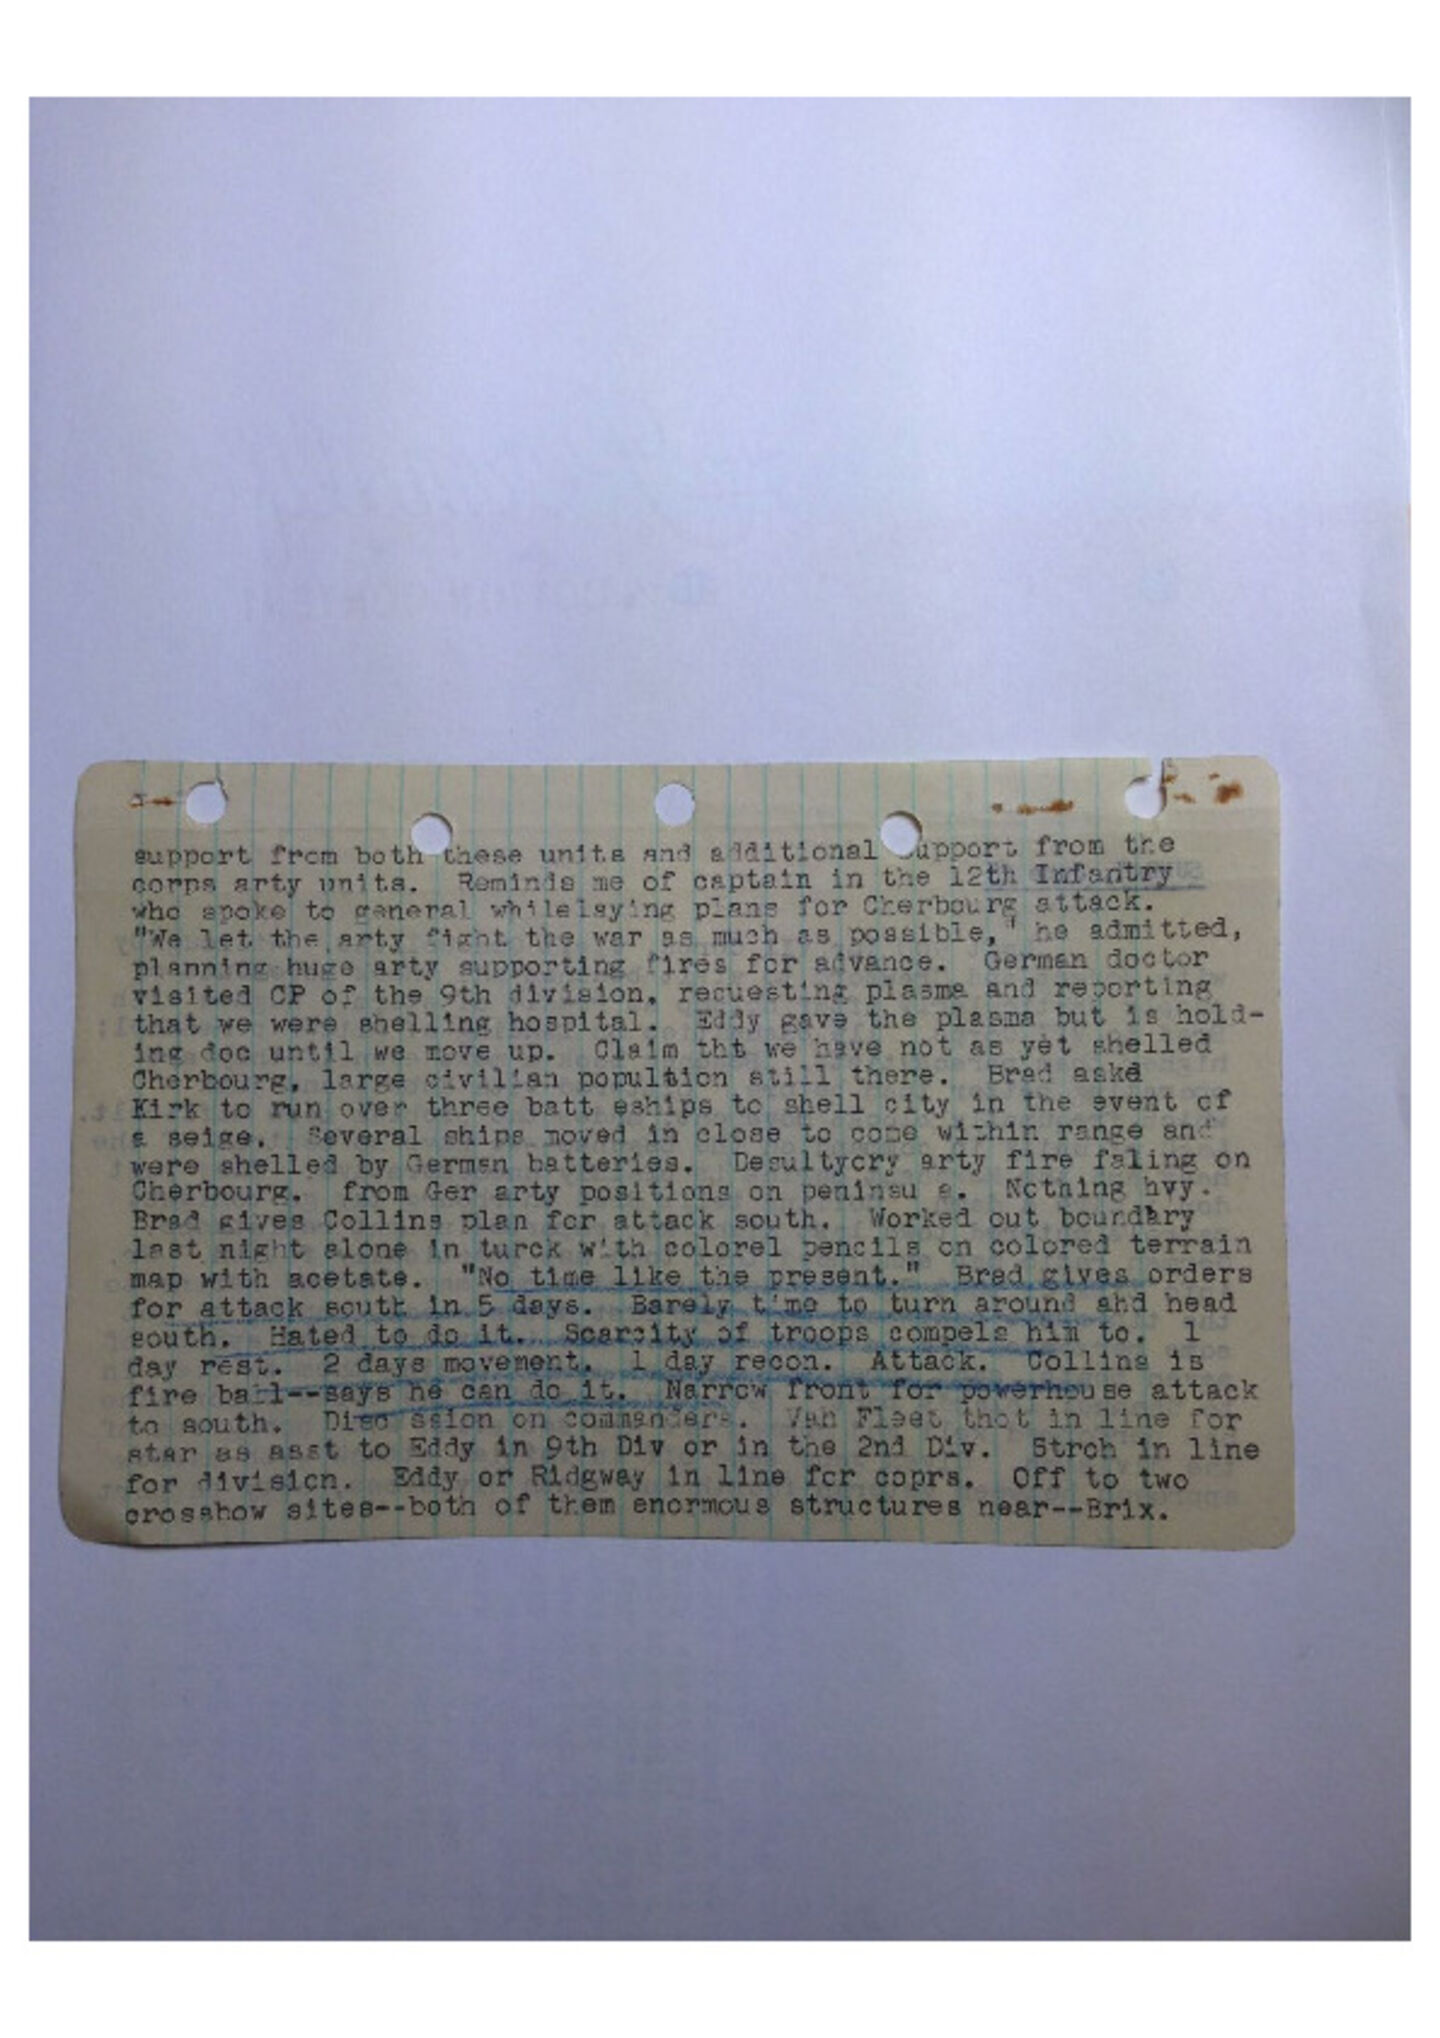 support from both these units and additional support from the
corps arty units.  Reminds me of captain in the 12th Infantry
who spoke to general whilelaying plans for Cherbourg attack.
"We let the arty fight the war as much as possible," he admitted,
planning huge arty supporting fires for advance.  German doctor
visited CP of the 9th division, requesting plasma and reporting
that we were shelling hospital.  Eddy gave the plasma but is hold-
ing doc until we move up.  Claim tht we have not as yet shelled
Cherbourg, large civilian popultion still there.  Brad askd
Kirk to run over three batt eships to shell city in the event of
a seige.  Several ships moved in close to come within range and
were shelled by German batteries.  Desultycry arty fire faling on
Cherbourg.  from Ger arty positions on peninsu a.  Nothing hvy.
Brad gives Collins plan for attack south.  Worked out boundary
last night alone in turck with colorel pencils on colored terrain
map with acetate.  "No time like the present."  Brad gives orders
for attack south in 5 days.  Barely time to turn around and head
south.  Hated to do it.  Scarcity of troops compels him to.  1
day rest.  2 days movement.  1 day recon.  Attack.  Collins is
fire ball--says he can do it.  Narrow front for powerhouse attack
to south.  Disc ssion on commanders.  Van Fleet thot in line for
star as asst to Eddy in 9th Div or in the 2nd Div.  Strch in line
for division.  Eddy or Ridgway in line for coprs.  Off to two
crossbow sites--both of them enormous structures near--Brix.